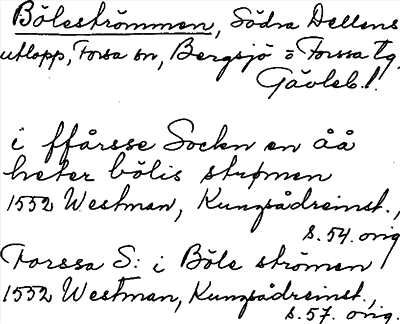 Böleströmmen, Södra Dellens
utlopp, Forsa sn, Bergsjö o Forssa tg,
Gävleb. l.
i ffårsse Sockn en åå
heter bölis strømen
1552 Westman, Kungsådreinst.,
s. 54. orig
Forssa S: i Böle strömen
1552 Westman, Kungsådreinst.,
s. 57. orig.